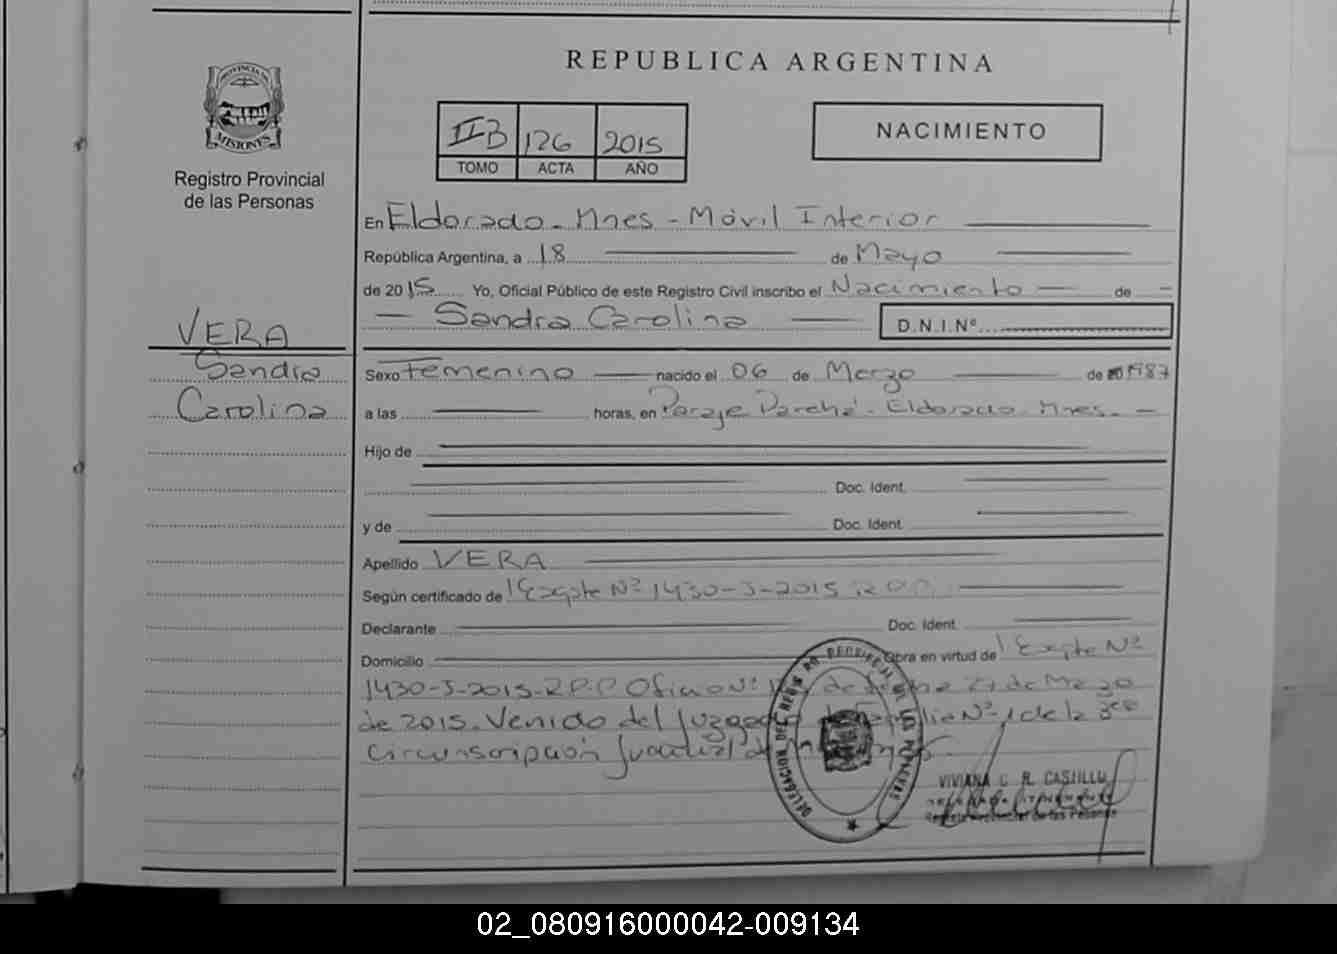 REPUBLICA ARGENTINA
PROVINCIA DE
MISIONES
Registro Provincial
de las Personas
IIB 126 2015
TOMO ACTA AÑO
NACIMIENTO
En Eldorado - Mnes - Móvil Interior
República Argentina, a 18 de Mayo
de 2015 Yo, Oficial Público de este Registro Civil inscribo el Nacimiento de
Sandra Carolina D.N.I.Nº
VERA
Sandra
Carolina
Sexo Femenino nacido el 06 de Marzo de 1987
a las horas, en Paraje Parehá - Eldorado Mnes.
Hijo de
Doc. Ident.
y de Doc. Ident.
Apellido VERA
Según certificado de Expte Nº 1430-J-2015 R.P.P.
Declarante Doc. Ident.
Domicilio Obra en virtud de Expte Nº
1430-J-2015-R.P.P Oficio Nº de fecha 27 de Marzo
de 2015. Venido del Juzgado de Familia Nº 1 de la 3era
Circunscripción Judicial de
DELEGACION DEL REGISTRO PROVINCIAL DE LAS PERSONAS
VIVIANA C. R. CASTILLO
Registro Provincial de las Personas
02_080916000042-009134